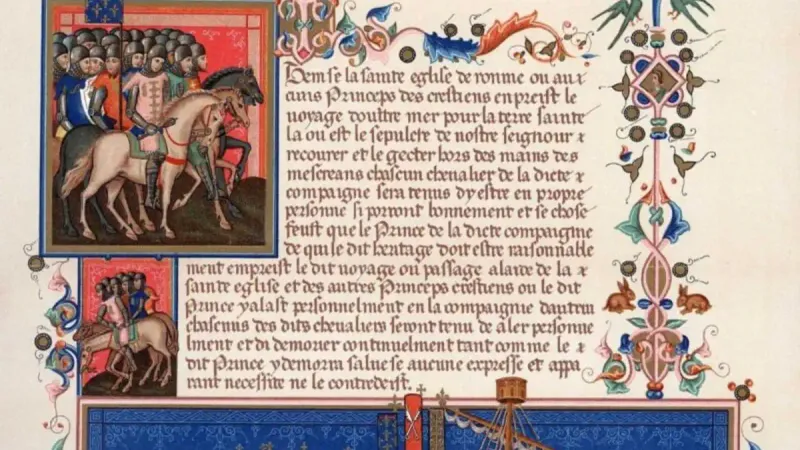 Item se la sainte eglise de romme ou aux
cuns Princeps des crestiens enpreist le
voyage doultre mer pour la terre sainte
la ou est le sepulcre de nostre seignour &
recourer et le gecter hors des mains des
mescreans chascun chevalier de la dicte &
compaigne sera tenus dy estre en propre
personne si porront bonnement et se chose
feust que le Prince de la dicte compaigne
de qui le dit heritage doit estre raisonnable
ment empreist le dit voyage ou passage alaide de la &
sainte eglise et des autres Princeps crestiens ou le dit
Prince y alast personelment en la compaignie dautrui
chascuns des dits chevaliers seront tenu de aler personne
lment et di demorer continuelment tant comme le &
dit Prince y demorra salue se aucune expresse et appa
rant necessite ne le contredeist.